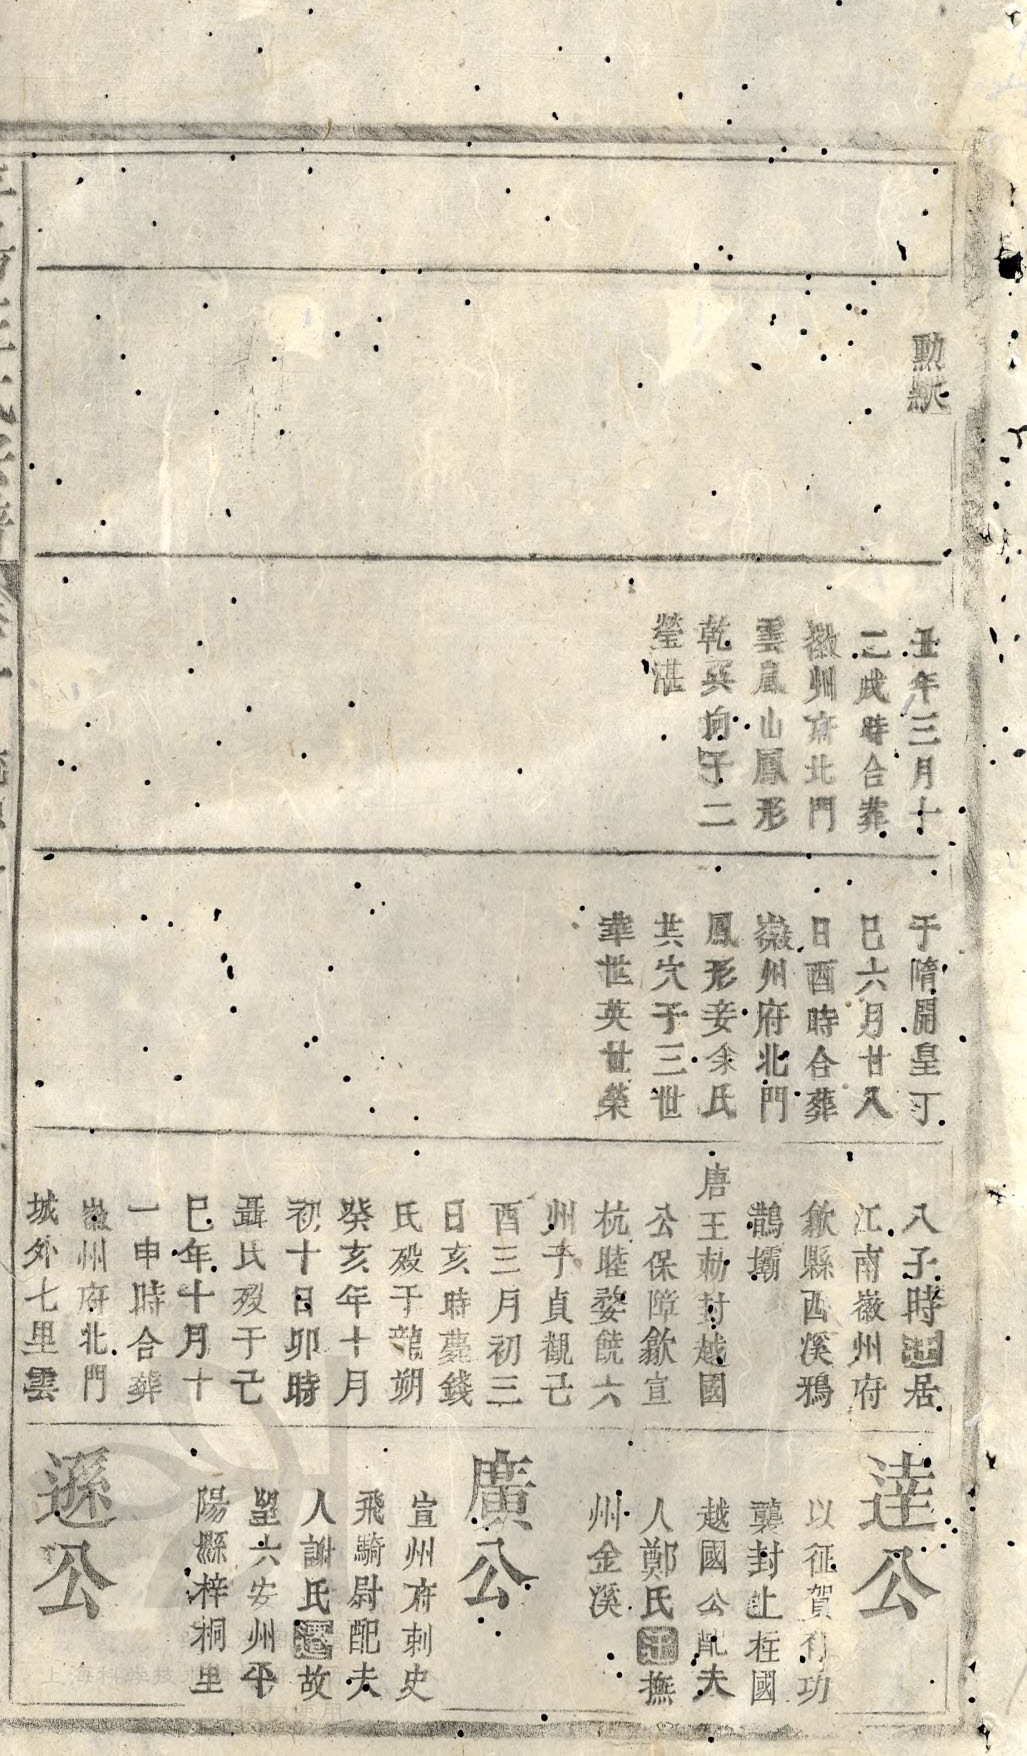 勳猷
丑年三月十
二戌時合葬
徽州府北門
雲嵐山鳳形
乾巽向子二
瑩湛
于隋開皇丁
巳六月廿八
日酉時合葬
徽州府北門
鳳形妾余氏
共穴子三世
華世英世榮
八子時遷居
江南徽州府
歙縣西溪鴉
鵲壩
唐王勅封越國
公保障歙宣
杭睦婺饒六
州于貞觀己
酉三月初三
日亥時薨錢
氏歿于龍朔
癸亥年十月
初十日卯時
聶氏歿于己
巳年十月十
一申時合葬
徽州府北門
城外七里雲
達公
以征賀有功
襲封上柱國
越國公配夫
人鄭氏遷撫
州金溪
廣公
宣州府刺史
飛騎尉配夫
人謝氏遷故
塋六安州平
陽縣梓桐里
遜公